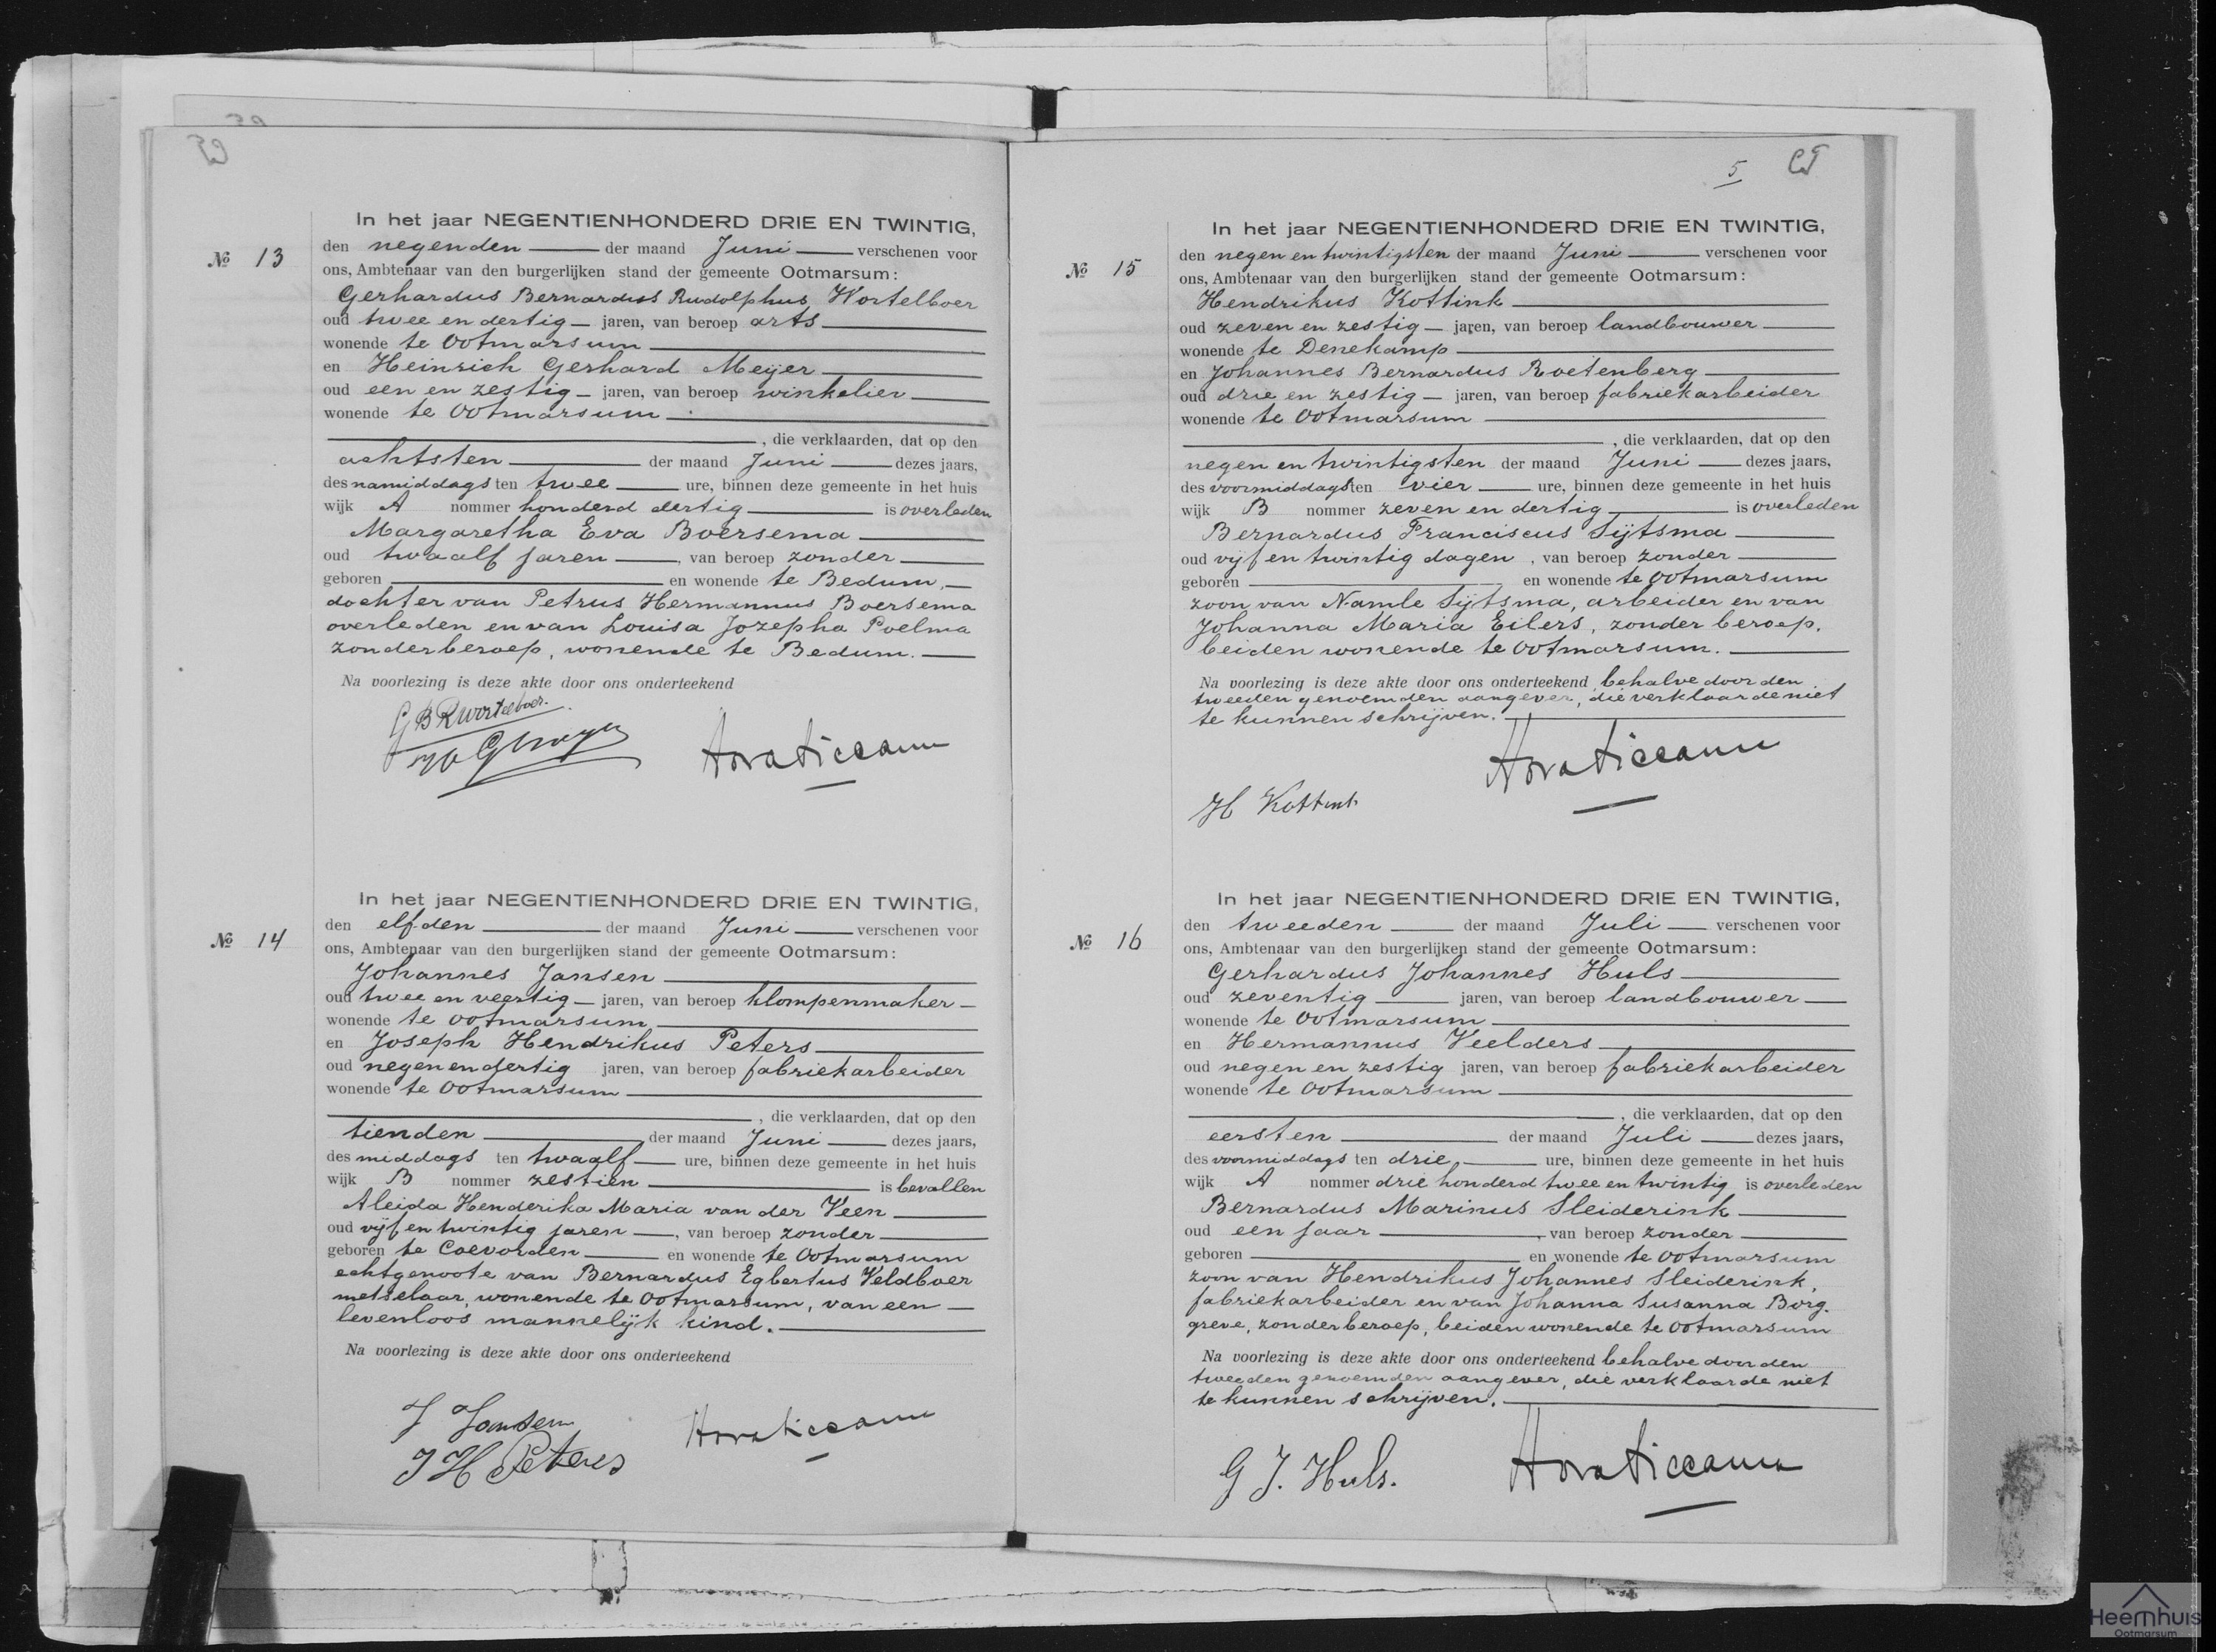 In het jaar NEGENTIENHONDERD DRIE EN TWINTIG,
№ 13
den negenden der maand Juni verschenen voor
ons, Ambtenaar van den burgerlijken stand der gemeente Ootmarsum:
Gerhardus Bernardus Rudolphus Wortelboer
oud twee en dertig jaren, van beroep arts
wonende te Ootmarsum
en Heinrich Gerhard Meyer
oud een en zestig jaren, van beroep winkelier
wonende te Ootmarsum
, die verklaarden, dat op den
achtsten der maand Juni dezes jaars,
des namiddags ten twee ure, binnen deze gemeente in het huis
wijk A nommer honderd dertig is overleden
Margaretha Eva Boersema
oud twaalf jaren, van beroep zonder
geboren en wonende te Bedum,
dochter van Petrus Hermannus Boersema
overleden en van Louisa Jozepha Poelma
zonder beroep, wonende te Bedum.
Na voorlezing is deze akte door ons onderteekend
G B R Wortelboer.
In het jaar NEGENTIENHONDERD DRIE EN TWINTIG,
№ 14
den elfden der maand Juni verschenen voor
ons, Ambtenaar van den burgerlijken stand der gemeente Ootmarsum:
Johannes Jansen
oud twee en veertig jaren, van beroep klompenmaker
wonende te Ootmarsum
en Joseph Hendrikus Peters
oud negen en dertig jaren, van beroep fabriekarbeider
wonende te Ootmarsum
, die verklaarden, dat op den
tienden der maand Juni dezes jaars,
des middags ten twaalf ure, binnen deze gemeente in het huis
wijk B nommer zestien is bevallen
Aleida Henderika Maria van der Veen
oud vijf en twintig jaren, van beroep zonder
geboren te Coevorden en wonende te Ootmarsum
echtgenoote van Bernardus Egbertus Veldboer
metselaar, wonende te Ootmarsum, van een
levenloos mannelijk kind.
Na voorlezing is deze akte door ons onderteekend
J Jansen
J H Peters
5
In het jaar NEGENTIENHONDERD DRIE EN TWINTIG,
№ 15
den negen en twintigsten der maand Juni verschenen voor
ons, Ambtenaar van den burgerlijken stand der gemeente Ootmarsum:
Hendrikus Kottink
oud zeven en zestig jaren, van beroep landbouwer
wonende te Denekamp
en Johannes Bernardus Roetenberg
oud drie en zestig jaren, van beroep fabriekarbeider
wonende te Ootmarsum
, die verklaarden, dat op den
negen en twintigsten der maand Juni dezes jaars,
des voormiddags ten vier ure, binnen deze gemeente in het huis
wijk B nommer zeven en dertig is overleden
Bernardus Franciscus Sijtsma
oud vijf en twintig dagen, van beroep zonder
geboren en wonende te Ootmarsum
zoon van Namle Sijtsma, arbeider en van
Johanna Maria Eilers, zonder beroep.
beiden wonende te Ootmarsum.
Na voorlezing is deze akte door ons onderteekend behalve door den
tweeden genoemden aangever, die verklaarde niet
te kunnen schrijven.
H Kottink
In het jaar NEGENTIENHONDERD DRIE EN TWINTIG,
№ 16
den tweeden der maand Juli verschenen voor
ons, Ambtenaar van den burgerlijken stand der gemeente Ootmarsum:
Gerhardus Johannes Huls
oud zeventig jaren, van beroep landbouwer
wonende te Ootmarsum
en Hermannus Veelders
oud negen en zestig jaren, van beroep fabriekarbeider
wonende te Ootmarsum
, die verklaarden, dat op den
eersten der maand Juli dezes jaars,
des voormiddags ten drie, ure, binnen deze gemeente in het huis
wijk A nommer drie honderd twee en twintig is overleden
Bernardus Marinus Sleiderink
oud een jaar, van beroep zonder
geboren en wonende te Ootmarsum
zoon van Hendrikus Johannes Sleiderink,
fabriekarbeider en van Johanna Susanna Borg-
greve, zonder beroep, beiden wonende te Ootmarsum
Na voorlezing is deze akte door ons onderteekend behalve door den
tweeden genoemden aangever, die verklaarde niet
te kunnen schrijven.
G J. Huls.
Heemhuis
Ootmarsum